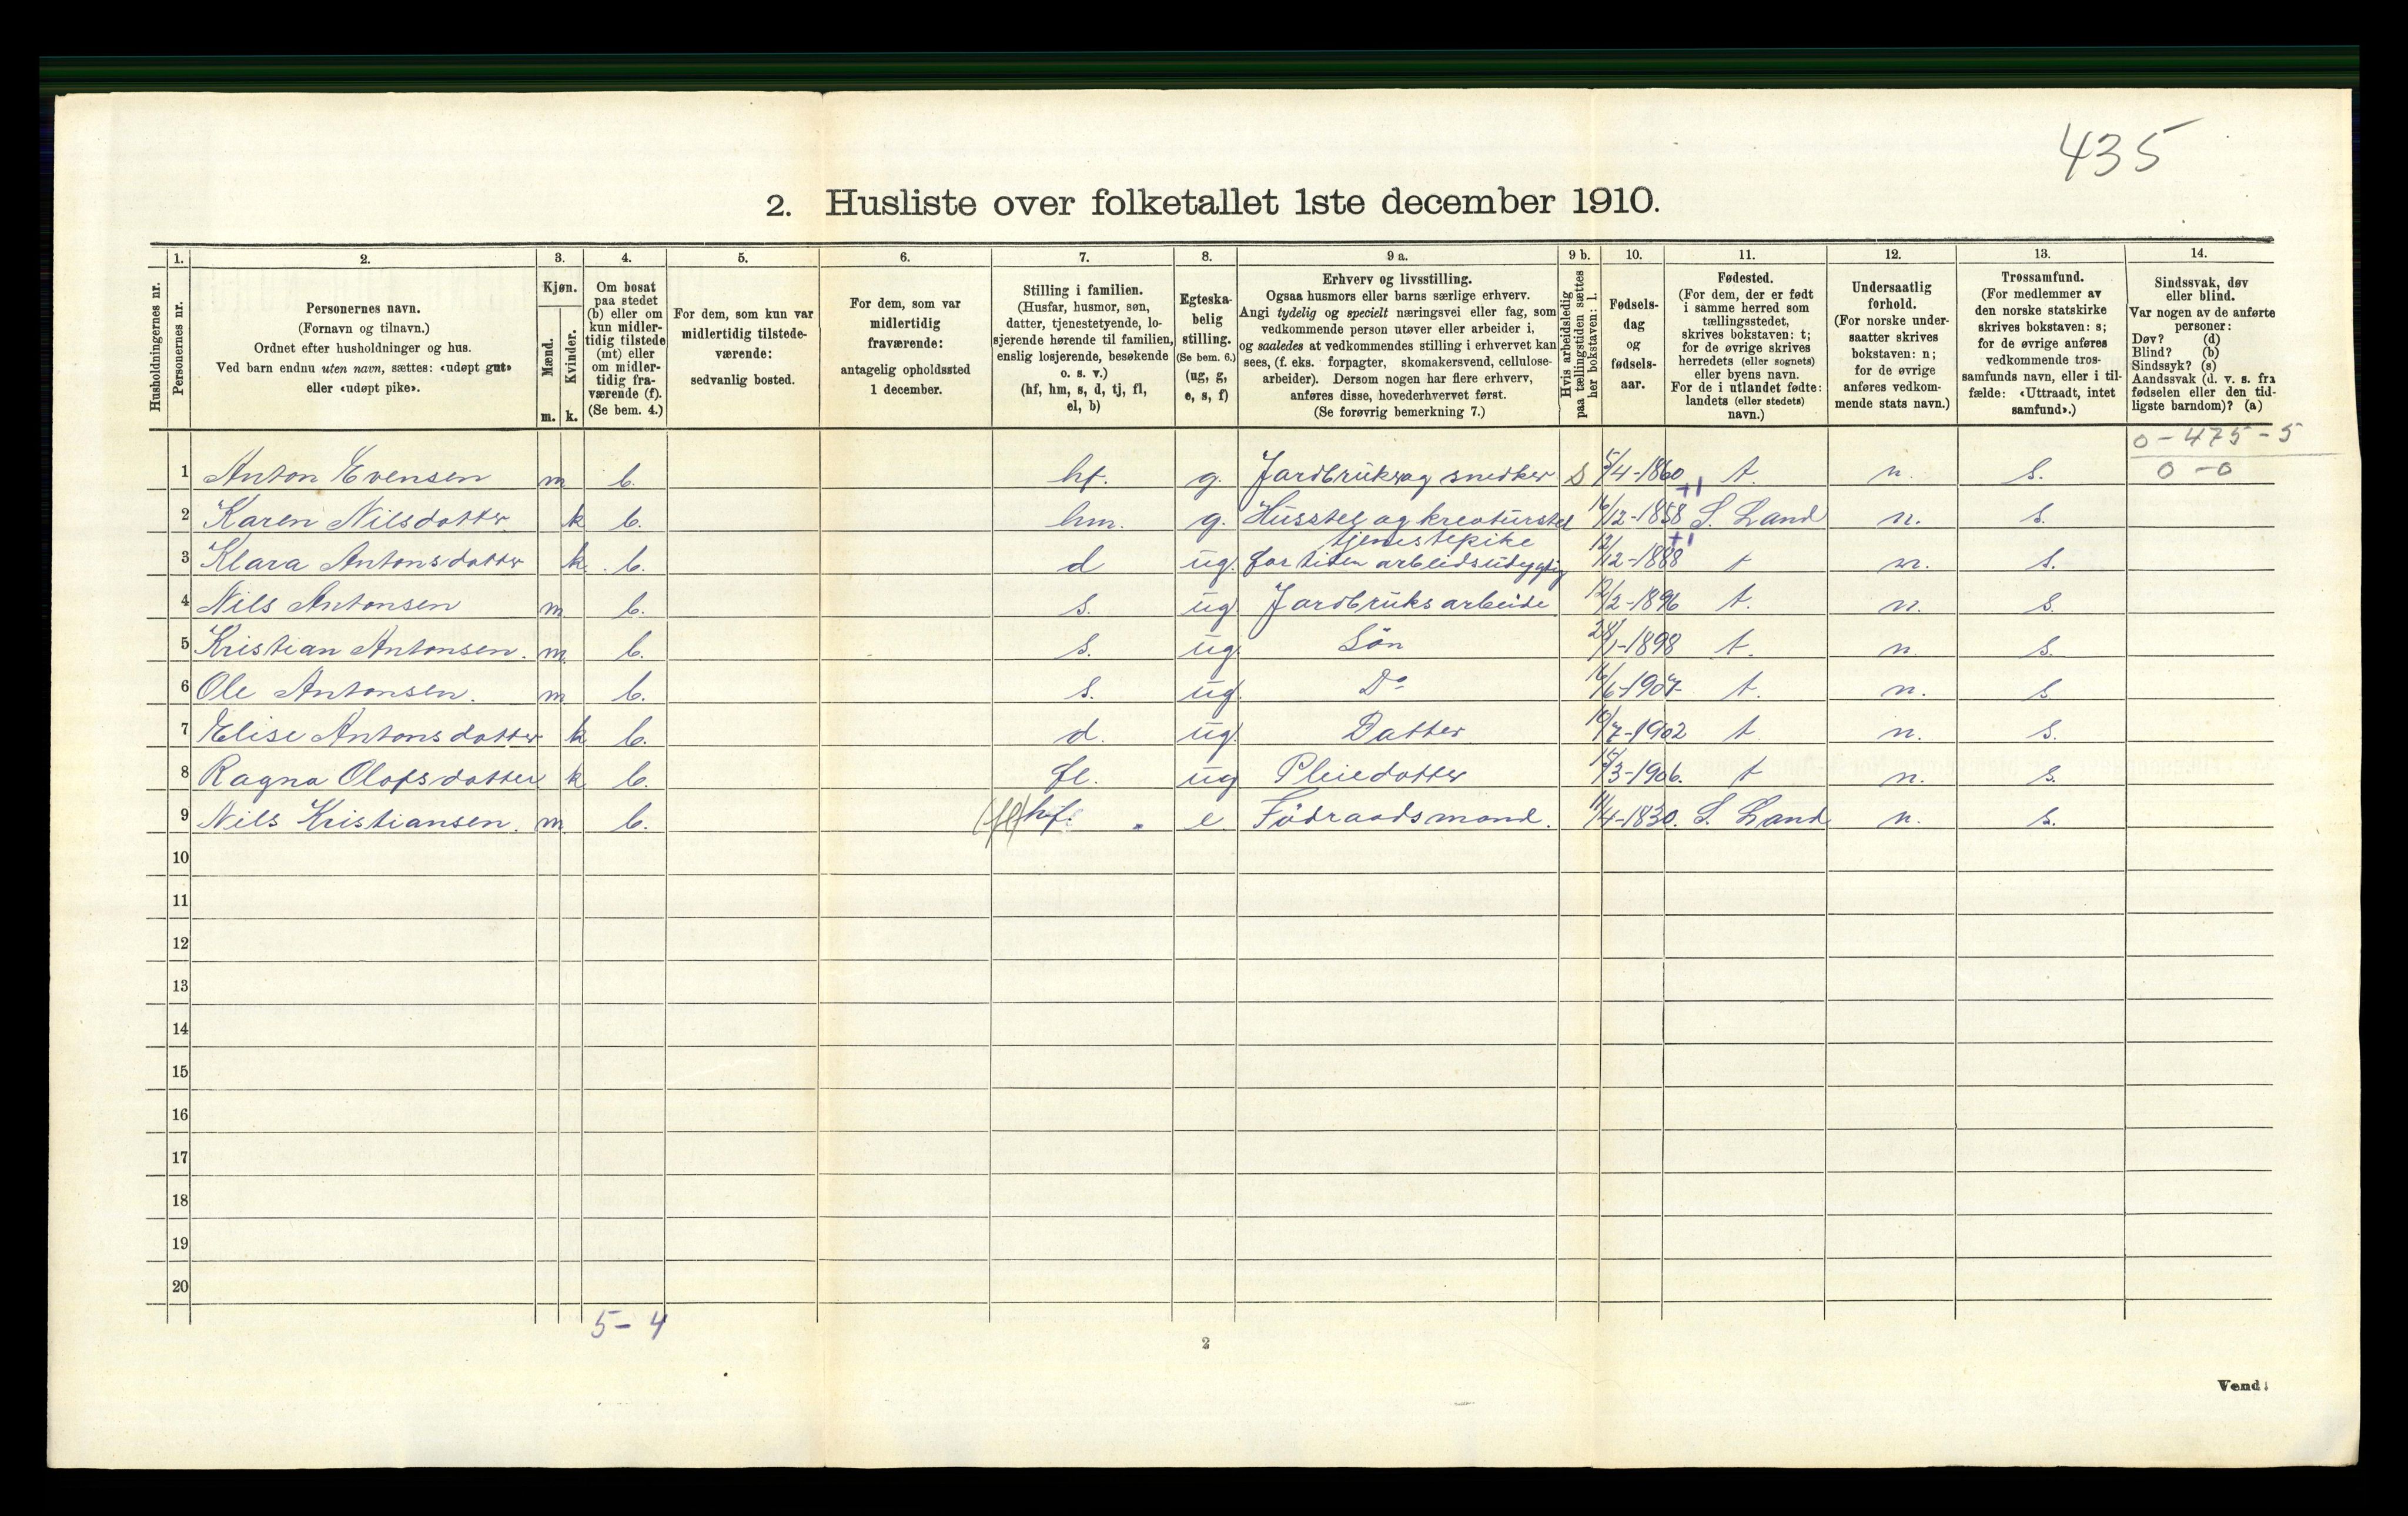 435
2. Husliste over folketallet 1ste december 1910.
Husholdningernes nr.
1. Personernes nr.
2. Personernes navn.
(Fornavn og tilnavn.)
Ordnet efter husholdninger og hus.
Ved barn endnu uten navn, sættes: «udøpt gut»
eller «udøpt pike».
3. Kjøn.
Mænd. m.
Kvinder. k.
4. Om bosat
paa stedet
(b) eller om
kun midler-
tidig tilstede
(mt) eller
om midler-
tidig fra-
værende (f).
(Se bem. 4.)
5. For dem, som kun var
midlertidig tilstede-
værende:
sedvanlig bosted.
6. For dem, som var
midlertidig
fraværende:
antagelig opholdssted
1 december.
7. Stilling i familien.
(Husfar, husmor, søn,
datter, tjenestetyende, lo-
sjerende hørende til familien,
enslig losjerende, besøkende
o. s. v.)
(hf, hm, s, d, tj, fl,
el, b)
8. Egteska-
belig
stilling.
(Se bem. 6.)
(ug, g,
e, s, f)
9 a. Erhverv og livsstilling.
Ogsaa husmors eller barns særlige erhverv.
Angi tydelig og specielt næringsvei eller fag, som
vedkommende person utøver eller arbeider i,
og saaledes at vedkommendes stilling i erhvervet kan
sees, (f. eks. forpagter, skomakersvend, cellulose-
arbeider). Dersom nogen har flere erhverv,
anføres disse, hovederhvervet først.
(Se forøvrig bemerkning 7.)
9 b. Hvis arbeidsledig
paa tællingstiden sættes
her bokstaven: l.
10. Fødsels-
dag
og
fødsels-
aar.
11. Fødested.
(For dem, der er født
i samme herred som
tællingsstedet,
skrives bokstaven: t;
for de øvrige skrives
herredets (eller sognets)
eller byens navn.
For de i utlandet fødte:
landets (eller stedets)
navn.)
12. Undersaatlig
forhold.
(For norske under-
saatter skrives
bokstaven: n;
for de øvrige
anføres vedkom-
mende stats navn.)
13. Trossamfund.
(For medlemmer av
den norske statskirke
skrives bokstaven: s;
for de øvrige anføres
vedkommende tros-
samfunds navn, eller i til-
fælde: «Uttraadt, intet
samfund».)
14. Sindssvak, døv
eller blind.
Var nogen av de anførte
personer:
Døv? (d)
Blind? (b)
Sindssyk? (s)
Aandssvak (d. v. s. fra
fødselen eller den tid-
ligste barndom)? (a)
0-475-5
1 Anton Evensen m b. hf. g. Jardbruk og snedker S 5/4-1860 t. n. s. 0-0
+1
2 Karen Nilsdatter k b. hm. g. Husstel og kreaturstel 16/12-1858 S. Land n. s.
tjenestepike +1
3 Klara Antonsdatter k. b. d ug. for tiden arbeidsudygtig 12/12-1888 t n. s.
4 Nils Antonsen m b. s. ug Jardbruksarbeide 12/2-1896 t. n. s.
5 Kristian Antonsen. m b. s. ug Sön 28/1-1898 t. n. s.
6 Ole Antonsen. m b. s. ug. Do 16/6-1907 t. n. s
7 Elise Antonsdatter k b. d. ug. Datter 10/7-1902 t n. s.
8 Ragna Olofsdatter k b. fl. ug Pleiedatter 15/3-1906. t n. s.
9 Nils Kristiansen. m b. (fl) hf. e Födraadsmand. 11/4-1830. S. Land n. s.
10
11
12
13
14
15
16
17
18
19
20
5-4
2
Vend!